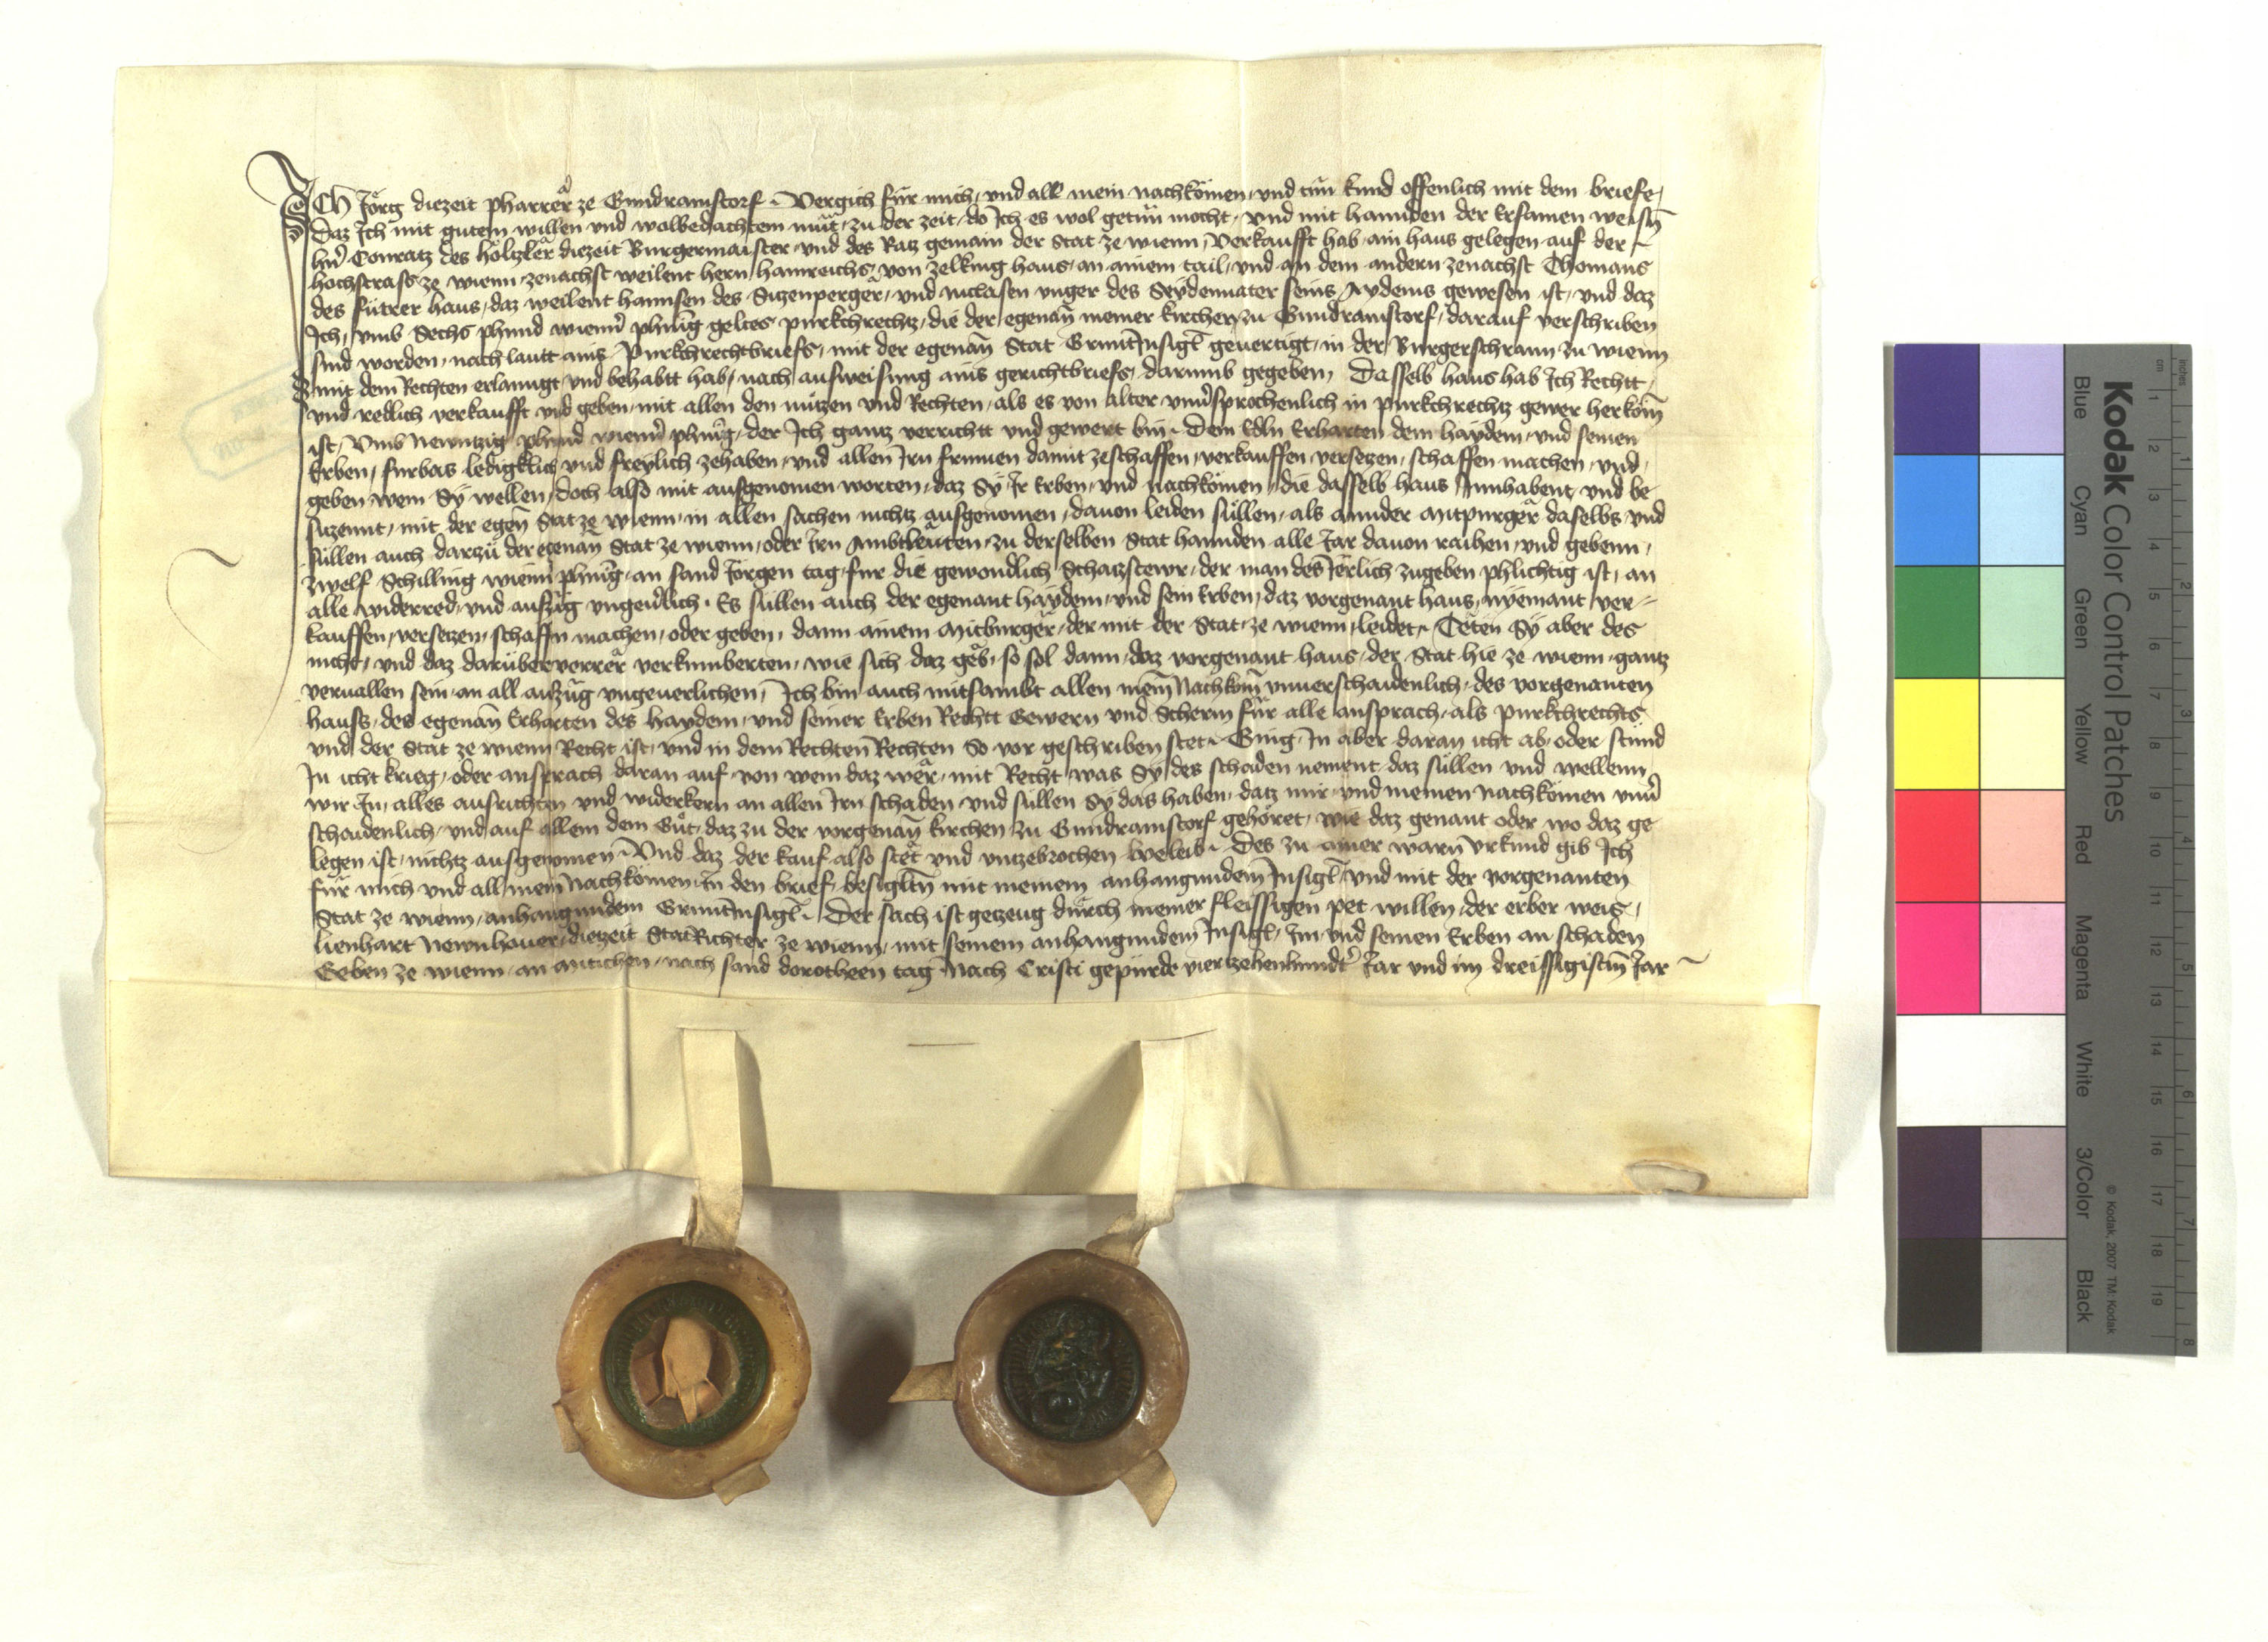 Ich Jörg diezeit pharrer ze Gundramstorf Vergich für mich und all mein nachkömen und tün kund offenlich mit dem briefe
Daz Ich mit gütem willen und wolbedachtem müt zu der zeit do Ich es wol getün mocht und mit hannden der Ersamen weisn̄
hn̄ Conratz des Höltzler diezeit Burgermaister und des Ratz gemain der Stat ze wienn Verkaufft hab ain haus gelegen auf der
hochstrass ze wienn zenachst weilent hern hainreichs von zelking haus an ainem tail und an dem andern zenachst Thomans
des fütrer haus daz weilent hannsen des Sitzenperger und niclasen unger des Seydennater seins Aydems gewesen ist und daz
Ich umb Sechs phund wienn̄ phnīg geltes purkchrechtz die der egenan̄ meiner kirchen zu Gundramstorf darauf verschriben
sind worden nach lautt ains Purkchrechtbriefs mit der egenan̄ Stat Gruntinsigl̄ geuertigt in der Burgerschrann zu wienn
mit dem Rechten erlanngt und behabtt hab nach ausweisung ains gerichtbriefs darumb gegeben Dasselb haus hab Ich Rechtt
und redlich verkaufft und geben mit allen den nützen und Rechten als es von alter unu̅sprochenlich in purkchrechtz gewer herkom̄
ist Umb Newntzig phund wienn̄ phnīg der Ich gantz verrichtt und gewert bin Dem Edln Erharten dem haydem und seinen
Erben furbas ledigklich und freylich zehaben und allen Irn frumen damit zeschaffen verkauffen versetzen schaffen machen und
geben wem Sÿ wellen doch also mit ausgenomen worten daz Sÿ Ir Erben und nachkömen die dasselb haus Innhabent und be
sitzennt mit der egen̄ Stat ze wienn in allen sachen nichtz ausgenomen dauon leiden süllen als annder mitpurger daselbs und
süllen auch darzü der egenan̄ Stat ze wienn oder Irn Ambtleuten zu derselben Stat hannden alle Jar dauon raihen und gebenn
zwelf Schilling wienn̄ phnīg an sand Jörgen tag für die gewondlich Schatzstewr der man des Jerlich zugeben phlichtig ist an
alle widerred und aufzüg ungeu̅lich Es süllen auch der egenant haydem und sein Erben daz vorgenant haus nyemant ver
kauffen versetzen schaffn machen oder geben dann ainem Mitburger der mit der Stat ze wienn leidet Teten Sÿ aber des
nicht und daz darüber verrer verkumberten wie sich daz geb so sol dann daz vorgenant haus der Stat hie ze wienn gantz
veruallen sein an all aufzüg ungeuerlichen Ich bin auch mitsambt allen mein̄ Nachkom̄ unuerschaidenlich des vorgenanten
hauss des egenan̄ Erharten des haydem und seiner Erben Rechtt Gewern und Scherm für alle ansprach als purkchrechts
und der Stat ze wienn Recht ist und in dem Rechten Rechten So vor geschriben stet Ging In aber daran icht ab oder stund
In icht krieg oder ansprach daran auf von wem daz wer mit Recht was Sÿ des schaden nement daz süllen und wellenn
wir In alles ausrichten und widerkern an allen Irn schaden und süllen Sÿ das haben datz mir und meinen nachkömen unu̅
schaidenlich und auf allem dem Güt daz zu der vorgenan̄ kirchen zu Gundramstorf gehöret wie daz genant oder wo daz ge
legen ist nichtz ausgenomen Und daz der kauf also stet und unzebrochen beleib Des zu ainer warn̄ urkund gib Ich
für mich und all mein Nachkömen In den brief besiglt̄n mit meinem anhangundem Insigl̄ und mit der vorgenanten
Stat ze wienn anhangundem Gruntinsigl̄ Der sach ist getzeug durch meiner fleissigen pet willen der erber weis
lienhart Newnhouer diezeit StatRichter ze wienn mit seinem anhangundem Insigl̄ Im und seinen Erben an schaden
Geben ze wienn an Mitichen nach sand dorotheen tag Nach Cristi gepürde vierzehenhundt̄ Jar und im dreissigistn̄ Jar
Kodak Color Control Patches
© Kodak, 2007 TM: Kodak
Blue Cyan Green Yellow Red Magenta White 3/Color Black
cm 1 2 3 4 5 6 7 8 9 10 11 12 13 14 15 16 17 18 19
inches 1 2 3 4 5 6 7 8